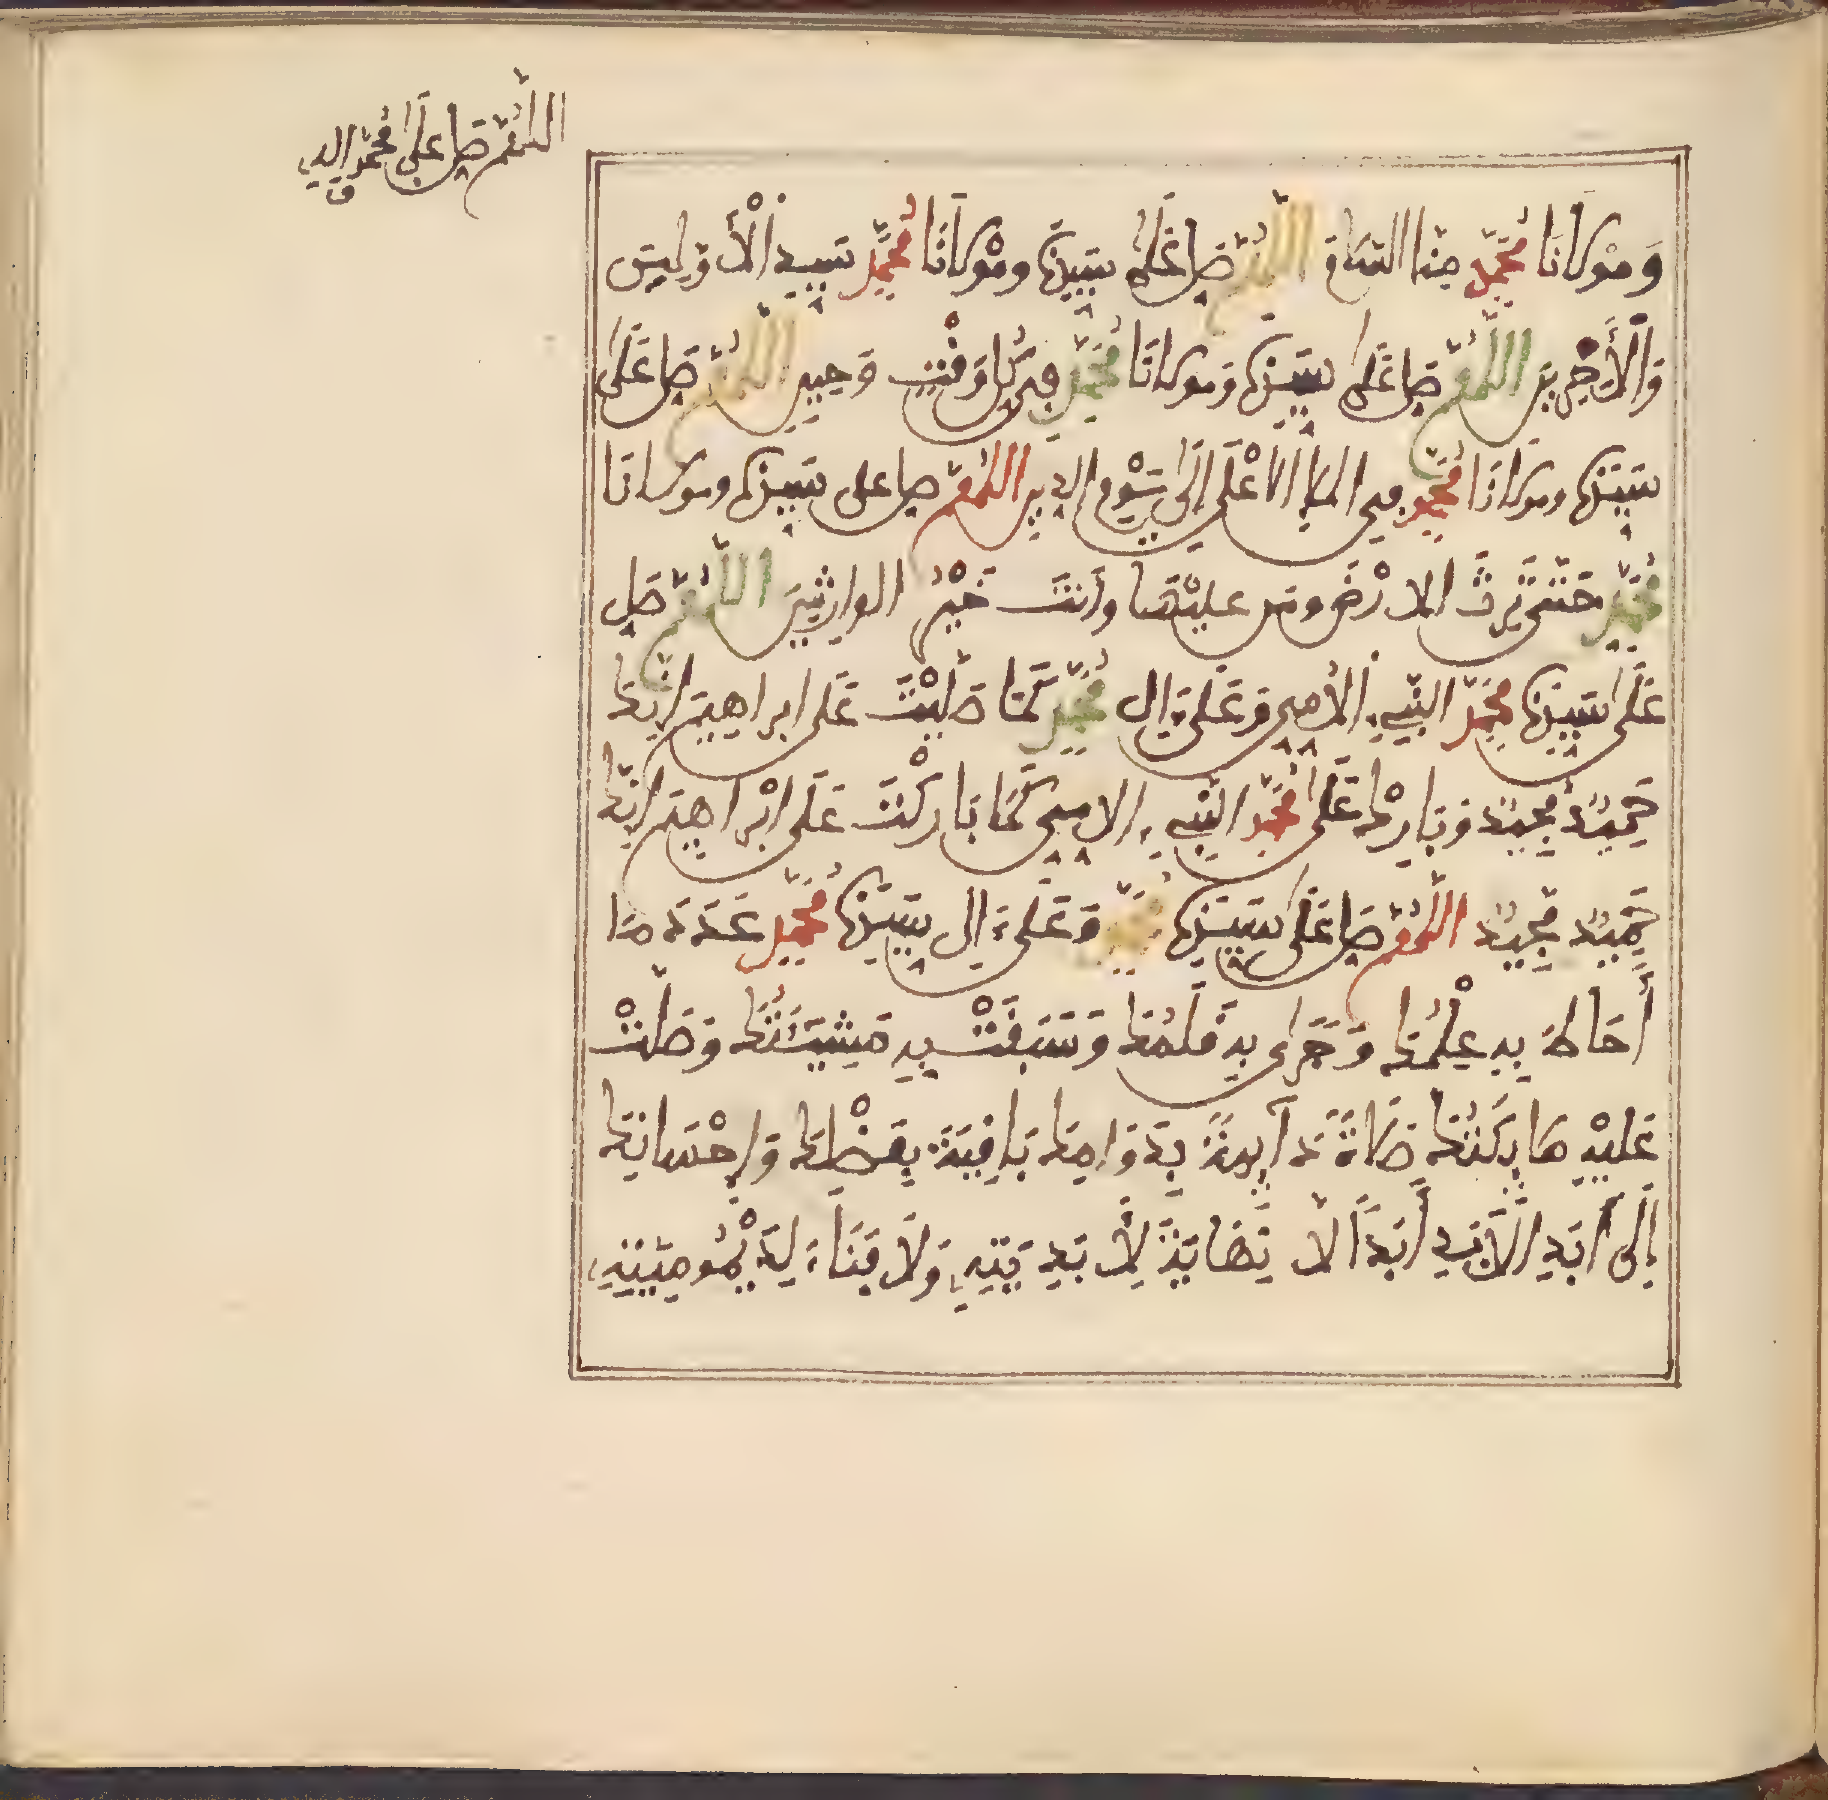 اللهم صل على محمد الذي
وَمَوْلَانَا مُحَمَّدٍ مِنَّا السَّلَامَ اللَّهُمَّ صَلِّ عَلَى سَيِّدِنَا وَمَوْلَانَا مُحَمَّدٍ سَيِّدِ الْأَوَّلِينَ
وَالْأَخِرِينَ اللَّهُمَّ صَلِّ عَلَى سَيِّدِنَا وَمَوْلَانَا مُحَمَّدٍ فِي كُلِّ وَقْتٍ وَحِينٍ اللَّهُمَّ صَلِّ عَلَى
سَيِّدِنَا وَمَوْلَانَا مُحَمَّدٍ فِي الْمَلَإِ الْأَعْلَى إِلَى يَوْمِ الدِّينِ اللَّهُمَّ صَلِّ عَلَى سَيِّدِنَا وَمَوْلَانَا
مُحَمَّدٍ حَتَّى تَرِثَ الْأَرْضَ وَمَنْ عَلَيْهَا وَأَنْتَ خَيْرُ الْوَارِثِينَ اللَّهُمَّ صَلِّ
عَلَى سَيِّدِنَا مُحَمَّدٍ النَّبِيِّ الْأُمِّيِّ وَعَلَى ءَالِ مُحَمَّدٍ كَمَا صَلَّيْتَ عَلَى ابْرَاهِيمَ إِنَّكَ
حَمِيدٌ مَجِيدٌ وَبَارِكْ عَلَى مُحَمَّدٍ النَّبِيِّ الْأُمِّيِّ كَمَا بَارَكْتَ عَلَى ابْرَاهِيمَ إِنَّكَ
حَمِيدٌ مَجِيدٌ اللَّهُمَّ صَلِّ عَلَى سَيِّدِنَا مُحَمَّدٍ وَعَلَى ءَالِ سَيِّدِنَا مُحَمَّدٍ عَدَدَ مَا
أَحَاطَ بِهِ عِلْمُكَ وَجَرَى بِهِ قَلَمُكَ وَسَبَقَتْ بِهِ مَشِيئَتُكَ وَصَلَّتْ
عَلَيْهِ مَلَائِكَتُكَ صَلَاةً دَآئِمَةً بِدَوَامِكَ بَاقِيَةً بِفَضْلِكَ وَإِحْسَانِكَ
إِلَى أَبَدِ الْأَبَدِ أَبَدًا لَا نِهَايَةَ لِأَبَدِيَّتِهِ وَلَا فَنَاءَ لِدَيْمُومِيَّتِهِ